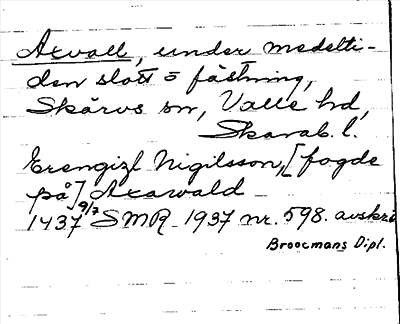 Axvall, under medelti-
den slott o fästning,
Skärvs sn, Valle hd,
Skarab. l.
Erengizl Nigilsson, [fogde
på] Axawald
1437 9/7 SMR 1937 nr. 598. avskr
Broocmans Dipl.